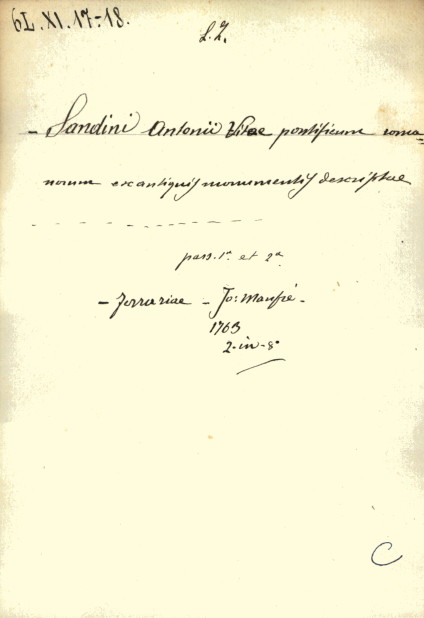 6L.XI.17-18.
L.Z.
- Sandini Antonii Vitae pontificum roma=
norum ex antiquis monumentis descriptae
pars. 1ª et 2ª
- Ferrariae - Jo: Manfré -
1763
2-in-8º
C